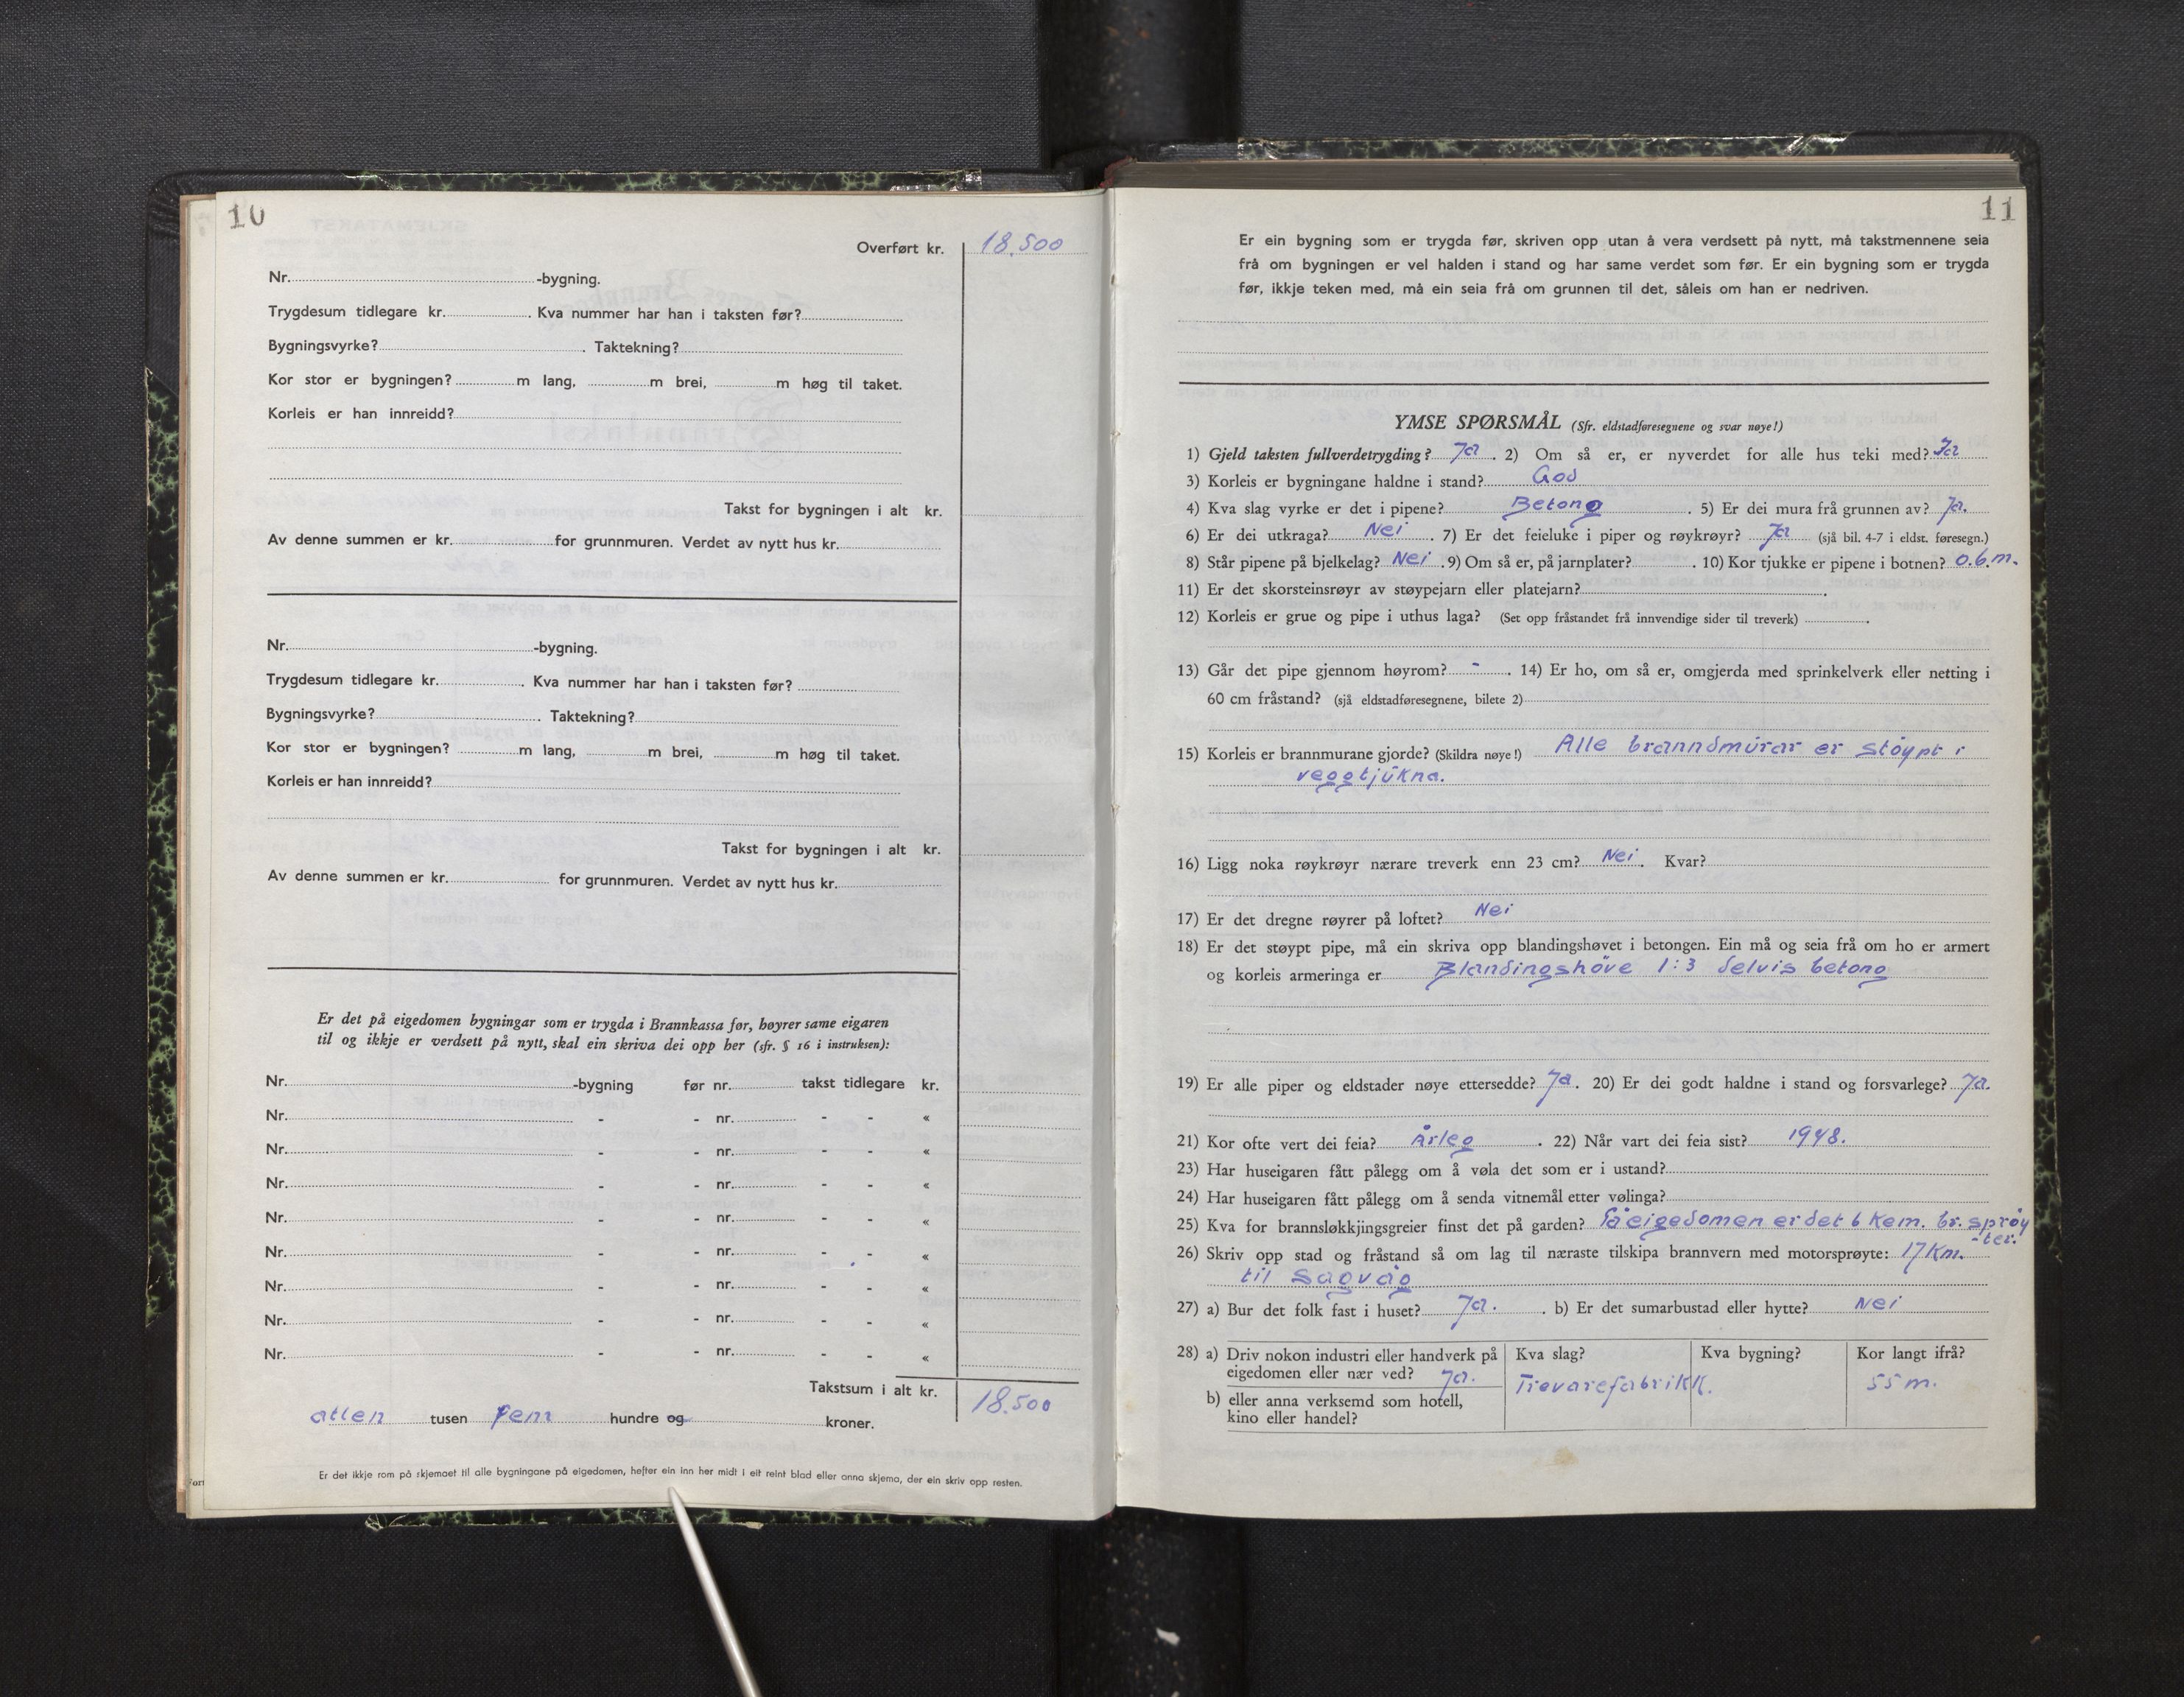 10
Overført kr. 18.500
Nr. -bygning.
Trygdesum tidlegare kr. . Kva nummer har han i taksten før?
Bygningsvyrke? . Taktekning?
Kor stor er bygningen? m lang, m brei, m høg til taket.
Korleis er han innreidd?
Takst for bygningen i alt kr.
Av denne summen er kr. for grunnmuren. Verdet av nytt hus kr.
Nr. -bygning.
Trygdesum tidlegare kr. . Kva nummer har han i taksten før?
Bygningsvyrke? . Taktekning?
Kor stor er bygningen? m lang, m brei, m høg til taket.
Korleis er han innreidd?
Takst for bygningen i alt kr.
Av denne summen er kr. for grunnmuren. Verdet av nytt hus kr.
Er det på eigedomen bygningar som er trygda i Brannkassa før, høyrer same eigaren
til og ikkje er verdsett på nytt, skal ein skriva dei opp her (sfr. § 16 i instruksen):
Nr. -bygning før nr. takst tidlegare kr.
Nr. - - nr. - - «
Nr. - - nr. - - «
Nr. - - nr. - - «
Nr. - - nr. - - «
Nr. - - nr. - - «
Nr. - - nr. - - «
Nr. - - nr. - - «
Nr. - - nr. - - «
Takstsum i alt kr. 18.500
atten tusen fem hundre og kroner.
Er det ikkje rom på skjemaet til alle bygningane på eigedomen, hefter ein inn her midt i eit reint blad eller anna skjema, der ein skriv opp resten.
11
Er ein bygning som er trygda før, skriven opp utan å vera verdsett på nytt, må takstmennene seia
frå om bygningen er vel halden i stand og har same verdet som før. Er ein bygning som er trygda
før, ikkje teken med, må ein seia frå om grunnen til det, såleis om han er nedriven.
YMSE SPØRSMÅL (Sfr. eldstadføresegnene og svar nøye!)
1) Gjeld taksten fullverdetrygding? Ja . 2) Om så er, er nyverdet for alle hus teki med? Ja
3) Korleis er bygningane haldne i stand? God
4) Kva slag vyrke er det i pipene? Betong . 5) Er dei mura frå grunnen av? Ja.
6) Er dei utkraga? Nei . 7) Er det feieluke i piper og røykrøyr? Ja (sjå bil. 4-7 i eldst. føresegn.)
8) Står pipene på bjelkelag? Nei . 9) Om så er, på jarnplater? . 10) Kor tjukke er pipene i botnen? 0.6.m.
11) Er det skorsteinsrøyr av støypejarn eller platejarn? .
12) Korleis er grue og pipe i uthus laga? (Set opp fråstandet frå innvendige sider til treverk) .
13) Går det pipe gjennom høyrom? - . 14) Er ho, om så er, omgjerda med sprinkelverk eller netting i
60 cm fråstand? (sjå eldstadføresegnene, bilete 2)
15) Korleis er brannmurane gjorde? (Skildra nøye!) Alle branndmurar er støypt i
veggtjukna.
16) Ligg noka røykrøyr nærare treverk enn 23 cm? Nei . Kvar?
17) Er det dregne røyrer på loftet? Nei
18) Er det støypt pipe, må ein skriva opp blandingshøvet i betongen. Ein må og seia frå om ho er armert
og korleis armeringa er Blandingshöve 1:3 delvis betong
19) Er alle piper og eldstader nøye ettersedde? Ja . 20) Er dei godt haldne i stand og forsvarlege? Ja.
21) Kor ofte vert dei feia? Årleg . 22) Når vart dei feia sist? 1948.
23) Har huseigaren fått pålegg om å vøla det som er i ustand?
24) Har huseigaren fått pålegg om å senda vitnemål etter vølinga?
25) Kva for brannsløkkjingsgreier finst det på garden? På eigedomen er det 6 Kem. br. sprøy
-ter.
26) Skriv opp stad og fråstand så om lag til næraste tilskipa brannvern med motorsprøyte: 17 Km.
til Sagvåg
27) a) Bur det folk fast i huset? Ja. . b) Er det sumarbustad eller hytte? Nei
28) a) Driv nokon industri eller handverk på Kva slag? Kva bygning? Kor langt ifrå?
eigedomen eller nær ved? Ja. Trevarefabrikk. 55 m.
b) eller anna verksemd som hotell,
kino eller handel?